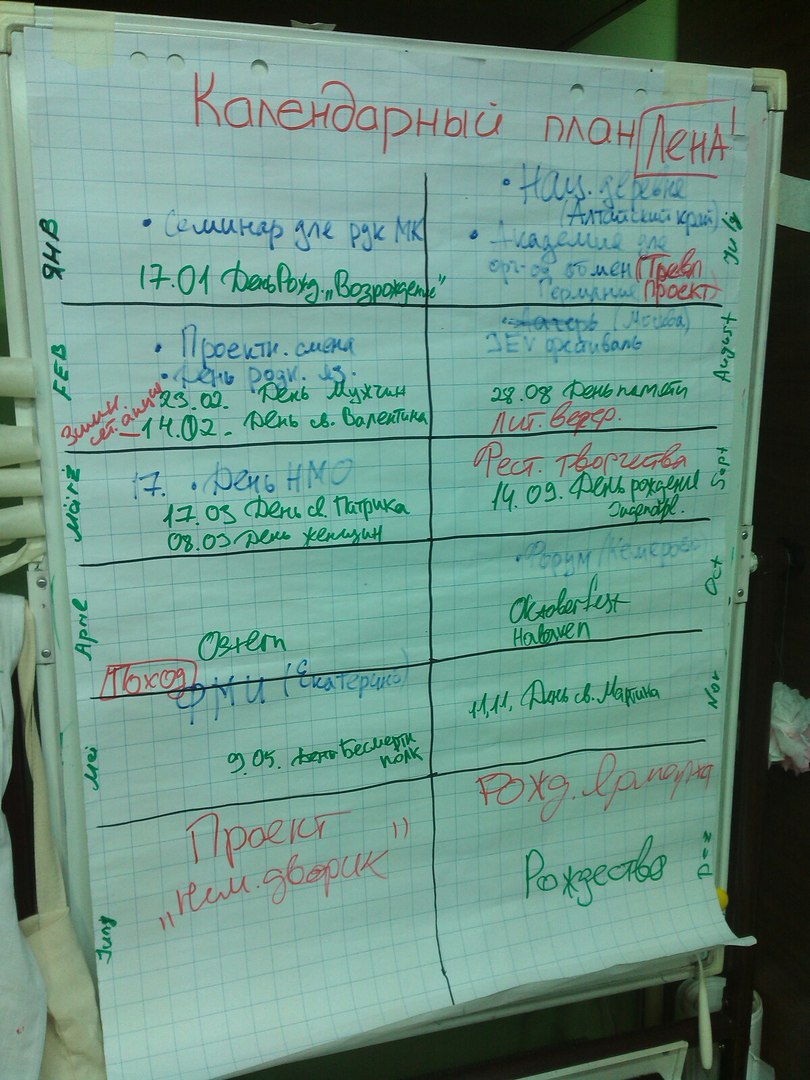 Календарный план
Лена!
ЯНВ
• Семинар для рук МК
17.01 День Рожд. „Возрождение"
ФЕВ
• Проектн. смена
• День родн. яз.
23.02. День Мужчин
14.02. День св. Валентина
Зимн.
März
17. • День НМО
17.03 День св Патрика
08.03 День женщин
Апрле
Остern
Поход
Mai
ФМИ (Екатеринб)
9.05. День Бесмертн
полк
Juny
Проект
„Нем. дворик"
July
• Нац. деревня
(Алтайский край)
• Академия для
орг-ов обмен
Германия
(Тревл
Проект)
August
• Лагерь (Москва)
JEV фестиваль
28.08 День памяти
Лит. вечер.
Sept
Фест. творчества
14.09. День рождения
Oct
• Форум (Кемерово)
Oktoberfest
Halowen
Nov
11.11. День св. Мартина
Dez
Рожд. Ярмарка
Рождество